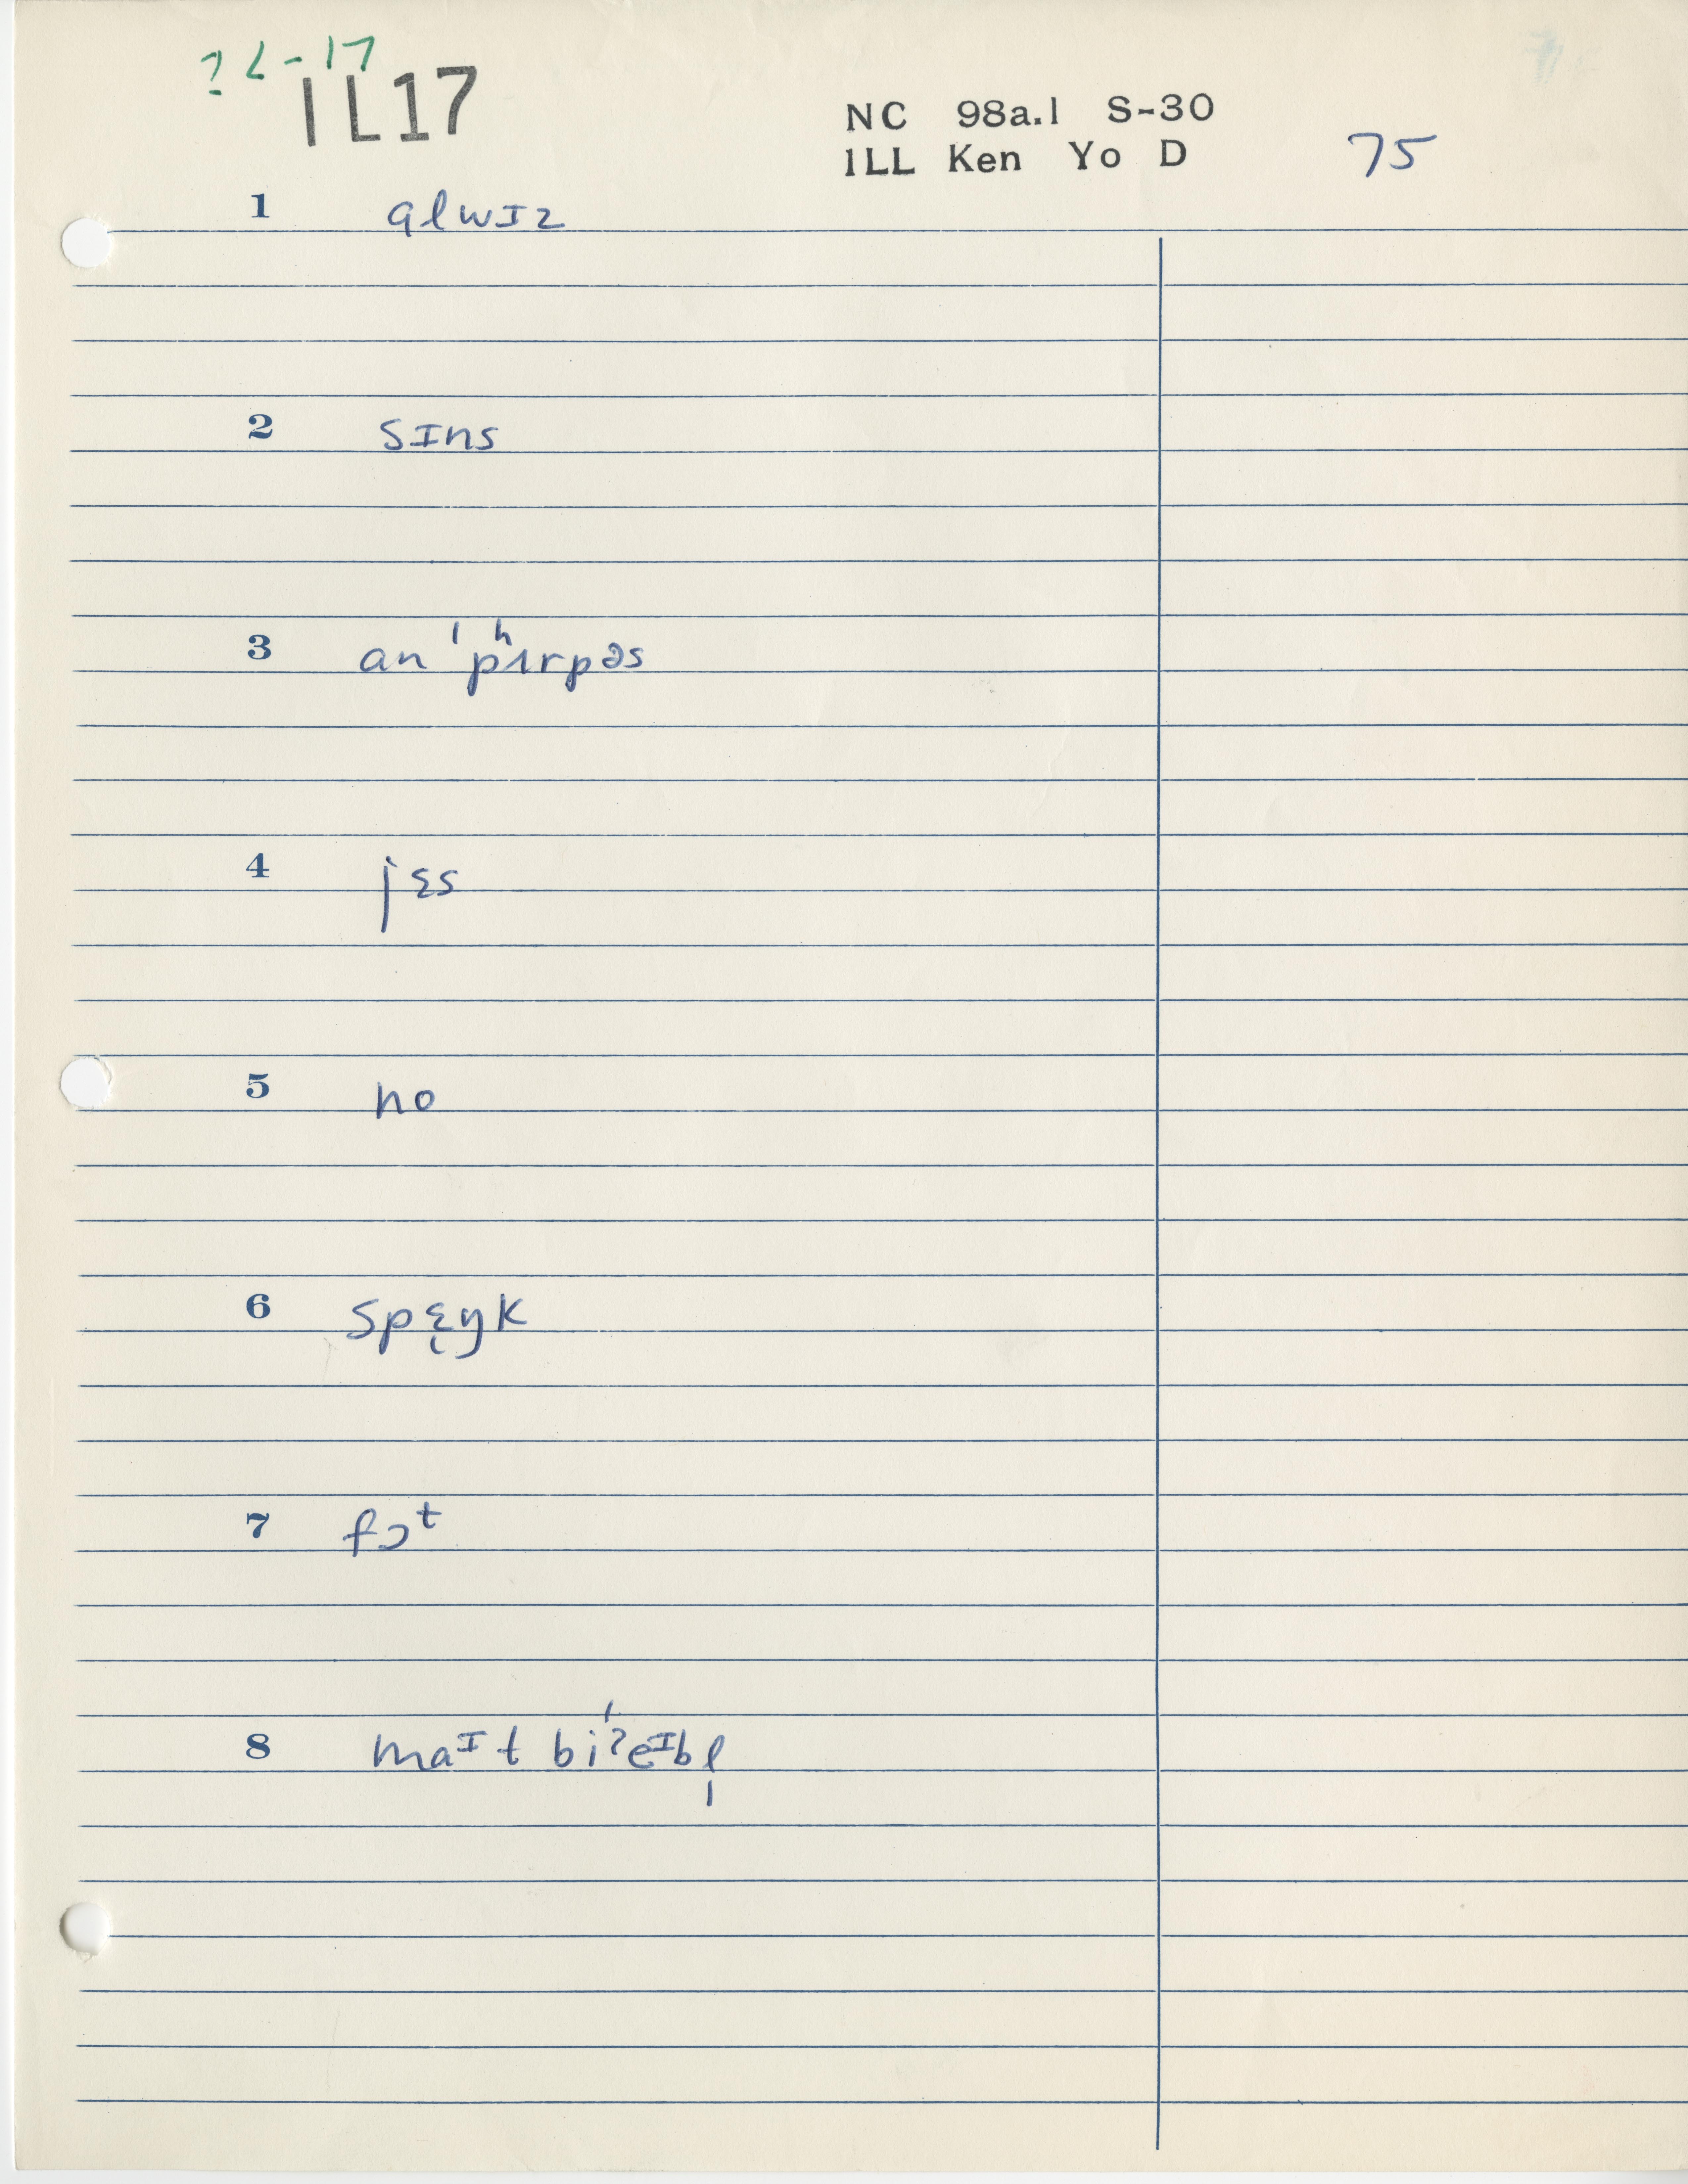 ?L-17
IL17
NC 98a.1 S-30
ILL Ken Yo D
75
1 ɑlwɪz
2 sɪns
3 an ˈpʰɜrpəs
4 jɛs
5 no
6 spɛ̨ɪ̯k
7 fɔᵗ
8 maᶦt biˈʔeᶦbl̩